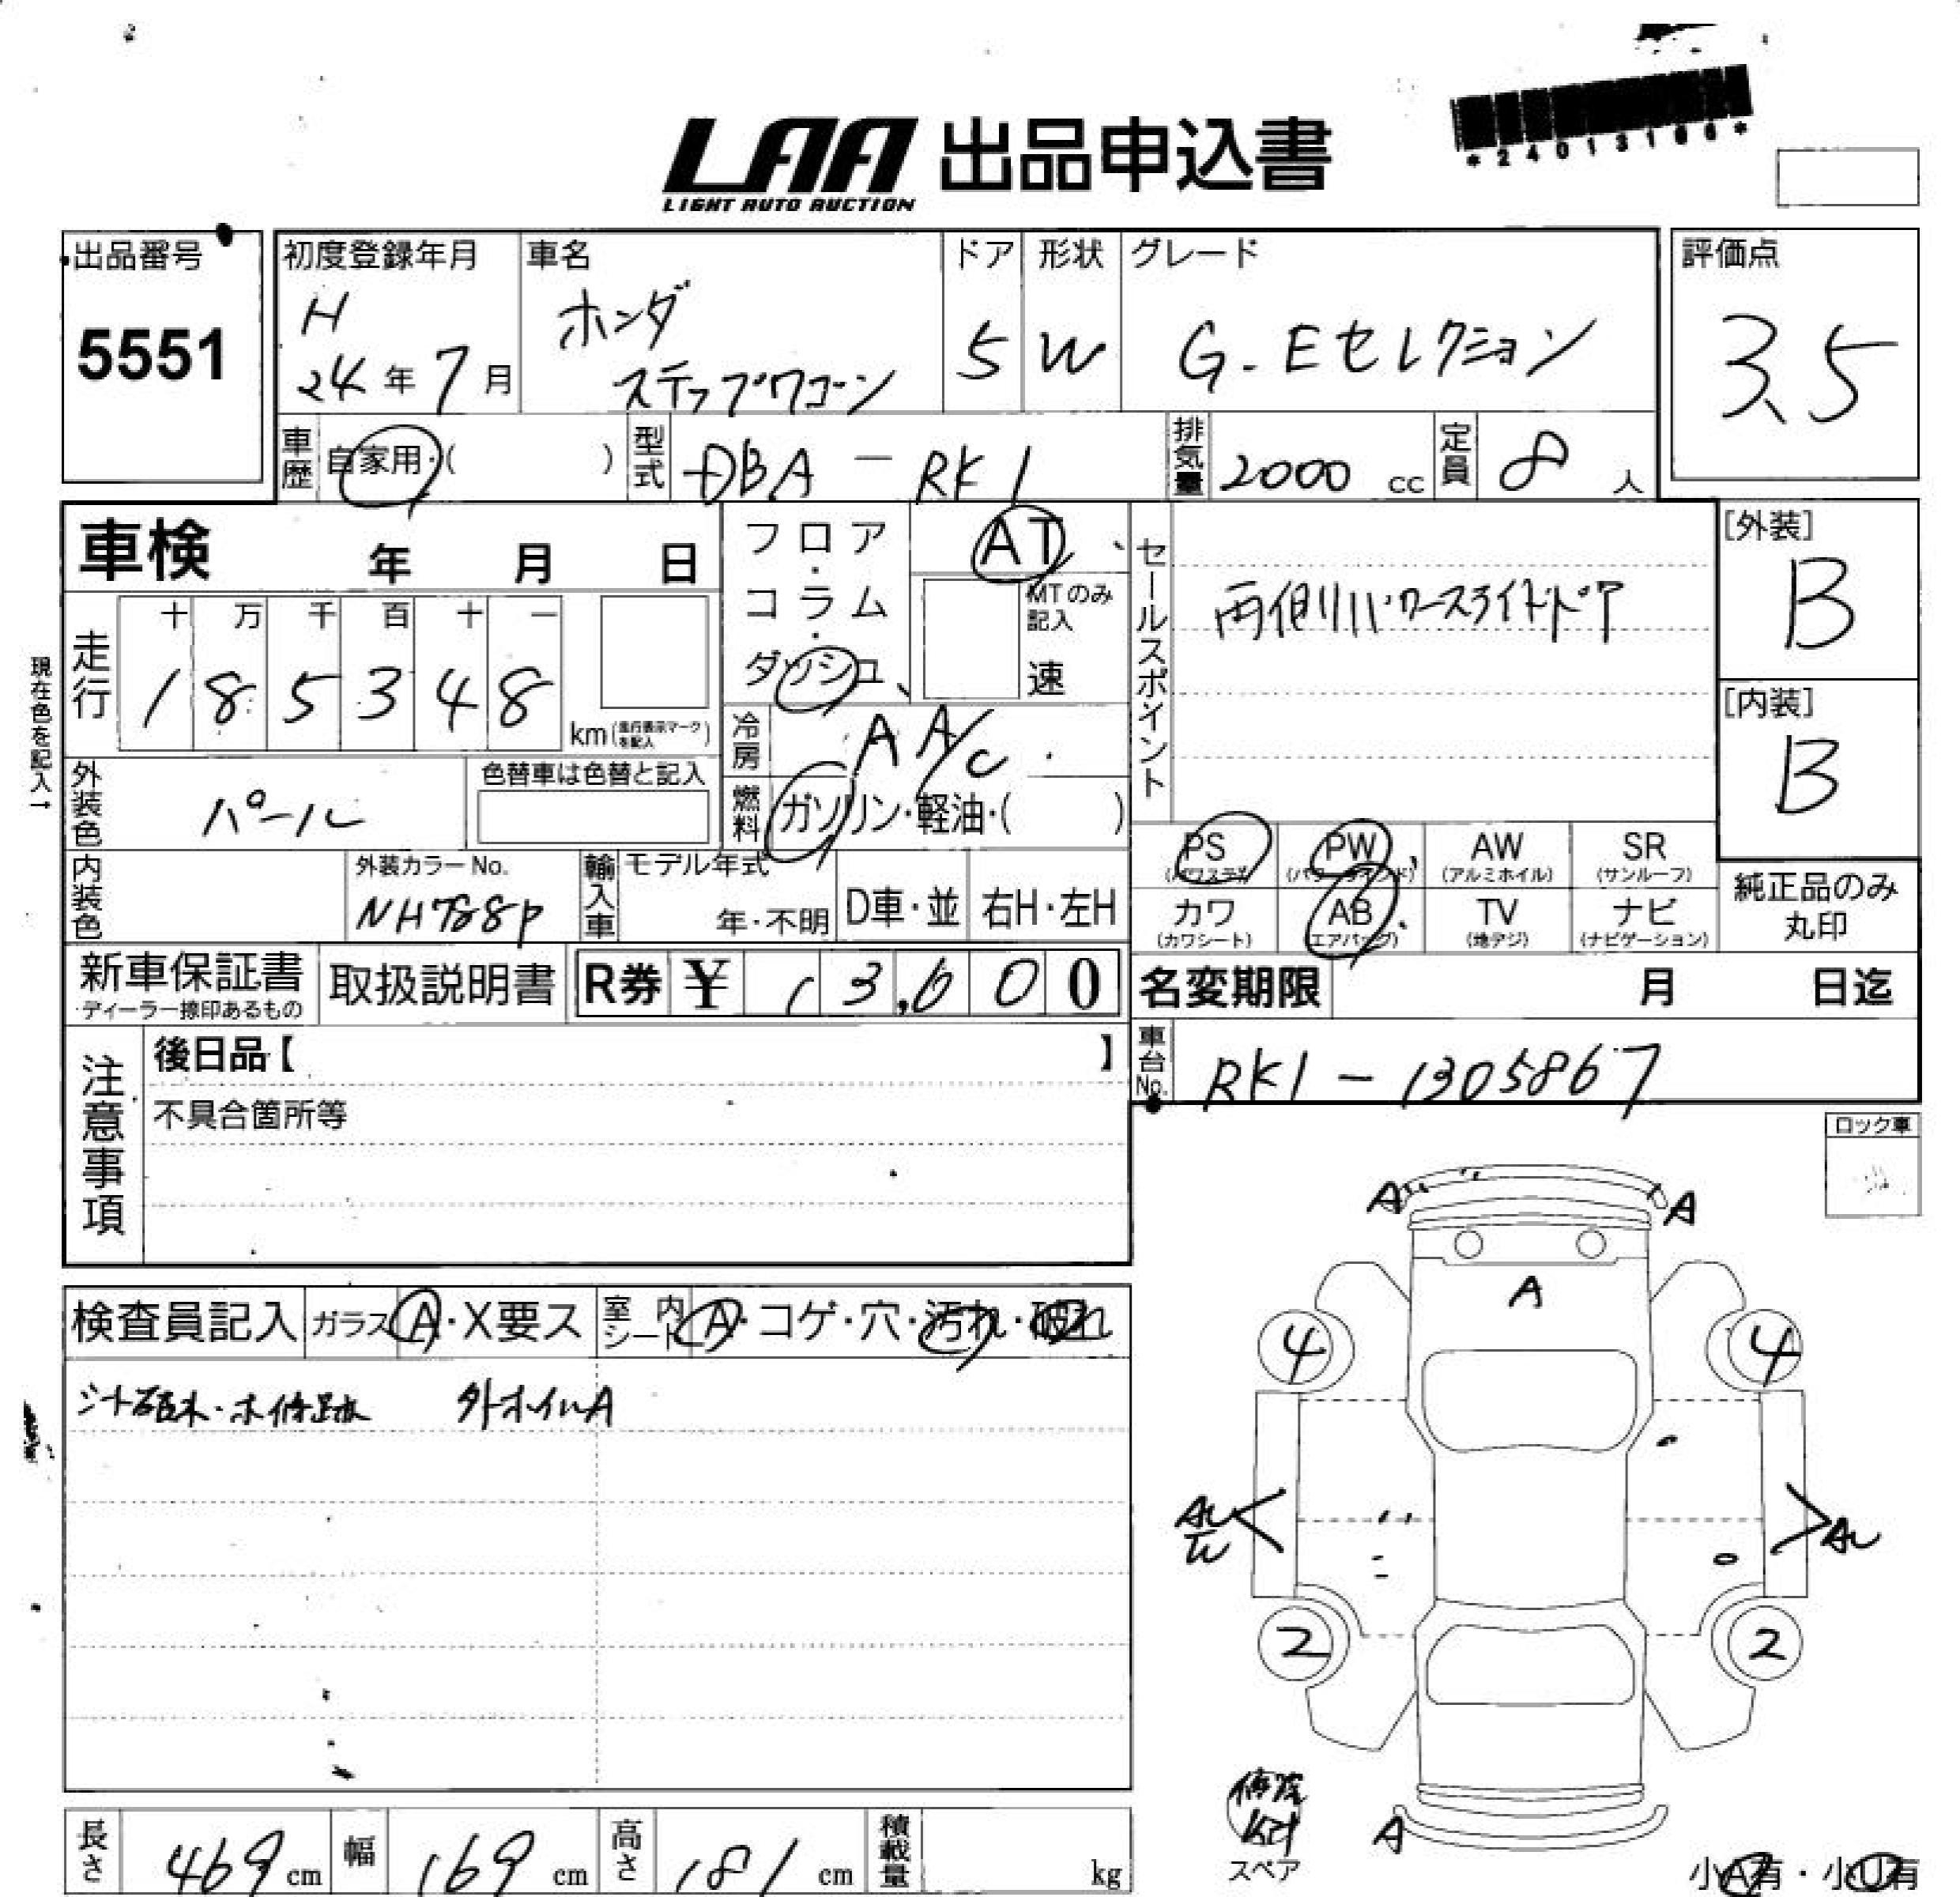 LAA 出品申込書
LIGHT AUTO AUCTION
*24013166*
出品番号
5551
初度登録年月
H
24年7月
車名
ホンダ
ステップワゴーン
ドア
5
形状
W
グレード
G.Eセレクション
評価点
3.5
車歴
自家用・( )
型式
DBA - RK1
排気量
2000 cc
定員
8 人
車検 年 月 日
フロア・コラム・ダッシュ
AT
MTのみ記入
速
セールスポイント
両側パワースライドドア
[外装]
B
[内装]
B
現在色を記入→
走行
十 万 千 百 十 一
1 8 5 3 4 8
km(走行表示マークを記入)
冷房
AA/C
燃料
ガソリン・軽油・( )
外装色
パール
色替車は色替と記入
内装色
外装カラーNo.
NH788P
輸入車
モデル年式
年・不明
D車・並
右H・左H
PS
(パワステ)
PW
(パワーウインド)
AW
(アルミホイル)
SR
(サンルーフ)
カワ
(カワシート)
AB
(エアバッグ)
TV
(地デジ)
ナビ
(ナビゲーション)
純正品のみ
丸印
新車保証書
ディーラー捺印あるもの
取扱説明書
R券 ¥ 13,600
名変期限 月 日迄
注意事項
後日品【 】
不具合箇所等
車台No.
RK1-1305867
ロック車
検査員記入
ガラス
A・X要ス
室内シート
A・コゲ・穴・汚れ・破れ
外ホイルA
A A
A
4 4
2 2
A
スペア
小A有・小U有
長さ 469 cm
幅 169 cm
高さ 181 cm
積載量 kg